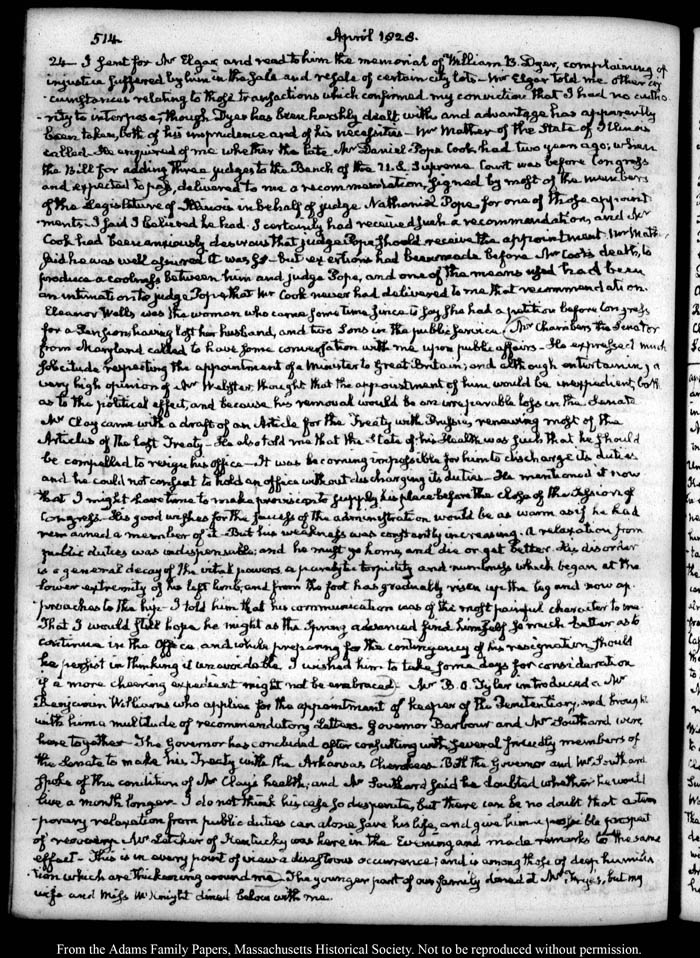 514
April 1828.
24— I sent for Mr Elgar, and read to him the memorial of William B. Dyer, complaining of
injustice suffered by him in the sale and resale of certain city lots— Mr Elgar told me other cir
-cumstances relating to those transactions which confirmed my conviction that I had no autho
-rity to interpose; though Dyer has been harshly dealt with, and advantage has apparently
been taken, both of his imprudence and of his necessities— Mr Mather of the State of Illinois
called— He enquired of me whether the late Mr Daniel Pope Cook had two years ago, when
the Bill for adding three judges to the Bench of the U.S. Supreme Court was before Congress
and expected to pass, delivered to me a recommendation, signed by most of the members
of the Legislature of Illinois in behalf of judge Nathaniel Pope for one of those appoint
ments— I said I believed he had— I certainly had received such a recommendation, and Mr
Cook had been anxiously desirous that judge Pope should receive the appointment. Mr Math
said he was well assured it was so— but exertions had been made before Mr Cook's death, to
produce a coolness between him and judge Pope, and one of the means used had been
an intimation to judge Pope that Mr Cook never had delivered to me that recommendation.
Eleanor Wells was the woman who came some time since to say she had a petition before Congress
for a Pension having lost her husband, and two Sons in the public service. Mr Chambers the Senator
from Maryland called to have some conversation with me upon public affairs— He expressed much
solicitude respecting the appointment of a Minister to Great Britain; and although entertaining a
very high opinion of Mr Webster, thought that the appointment of him would be inexpedient, both
as to the political effect, and because his removal would be an irreparable loss in the Senate
Mr Clay came with a draft of an Article for the Treaty with Prussia, renewing most of the
Articles of the last Treaty— He also told me that the State of his Health was such that he should
be compelled to resign his office— It was becoming impossible for him to discharge its duties
and he could not consent to hold an office without discharging its duties— He mentioned it now
that I might have time to make provision to supply his place before the close of the Session of
Congress— His good wishes for the success of the administration would be as warm as if he had
remained a member of it— But his weakness was constantly increasing. A relaxation from
public duties was indispensable; and he must go home, and die or get better. His disorder
is a general decay of the vital powers, a paralytic torpidity and numbness which began at the
lower extremity of his left limb, and from the foot has gradually risen up the leg and now ap-
-proaches to the hip— I told him that his communication was of the most painful character to me.
That I would still hope he might as the Spring advanced find himself so much better as to
continue in the Office, and while preparing for the contingency of his resignation, should
he persist in thinking it unavoidable I wished him to take some days for consideration
if a more cheering expedient might not be embraced— Mr B. O. Tyler introduced a Mr
Benjamin Williams who applies for the appointment of keeper of the Penitentiary, and brought
with him a multitude of recommendatory Letters. Governor Barbour and Mr Southard were
here together— The Governor has concluded after consulting with several friendly members of
the Senate to make his Treaty with the Arkansas Cherokees. Both the Governor and Mr Southard
spoke of the condition of Mr Clay's health, and Mr Southard said he doubted whether he would
live a month longer— I do not think his case so desperate, but there can be no doubt that a tem
-porary relaxation from public duties can alone save his life, and give him a possible prospect
of recovery. Mr Letcher of Kentucky was here in the Evening and made remarks to the same
effect— This is in every point of view a disastrous occurrence; and is among those of deep humilia
tion which are thickening around me— The younger part of our family dined at Mr but my
wife and Miss McKnight dined below with me.
From the Adams Family Papers, Massachusetts Historical Society. Not to be reproduced without permission.